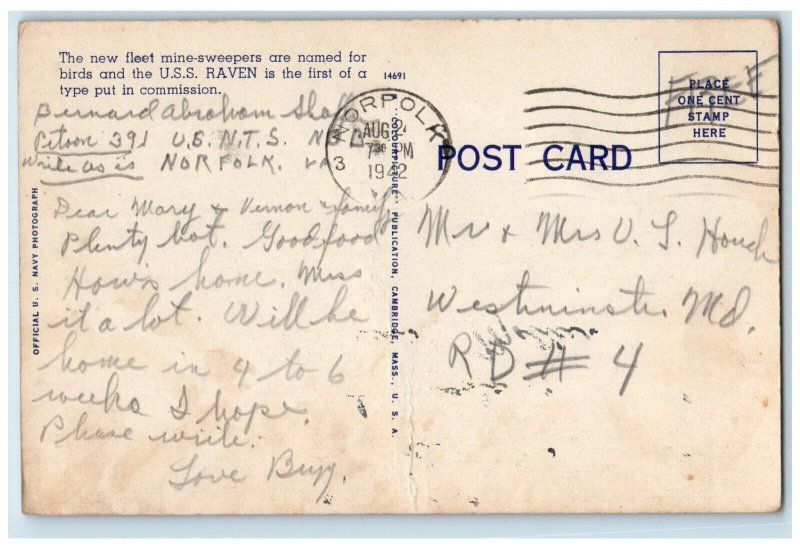 The new fleet mine-sweepers are named for
birds and the U.S.S. RAVEN is the first of a
type put in commission.
14691
Bernard Abraham
391 U.S.N.T.S.
Write as is NORFOLK, VA
NORFOLK
AUG
7 30 PM
1942
3
FREE
PLACE
ONE CENT
STAMP
HERE
POST CARD
OFFICIAL U. S. NAVY PHOTOGRAPH
"COLOURPICTURE" PUBLICATION, CAMBRIDGE, MASS., U. S. A.
Dear Mary & Vernon & family
Plenty hot. Good food
How's home. Miss
it a lot. Will be
home in 4 to 6
weeks I hope.
Please write.
Love
Mr & Mrs V. S. Houck
Westminster Md.
R D # 4